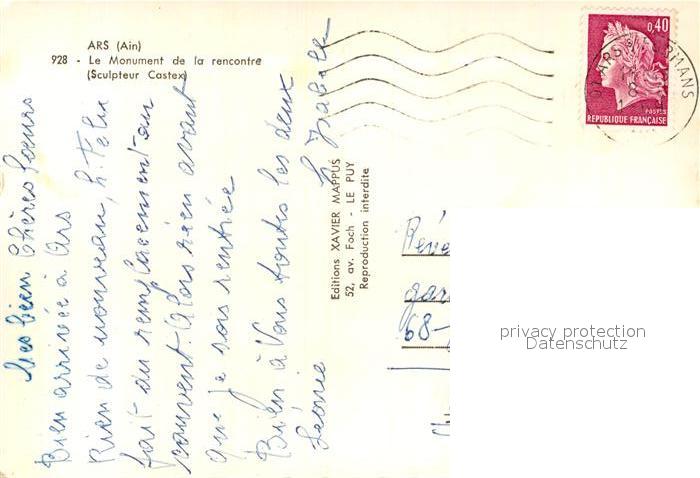 ARS (Ain)
928 - Le Monument de la rencontre
(Sculpteur Castex)
Mes bien Chères Sœurs
Bien arrivée à Ars
Rien de nouveau, St. Félix
fait du remplacement au
couvent. Alors rien avant
que je sois rentrée
Bien à Vous toutes les deux
Léonie
Isabelle
Editions XAVIER MAPPUS
52, av. Foch - LE PUY
Reproduction interdite
0,40
POSTES
REPUBLIQUE FRANÇAISE
ARS
68-
privacy protection
Datenschutz